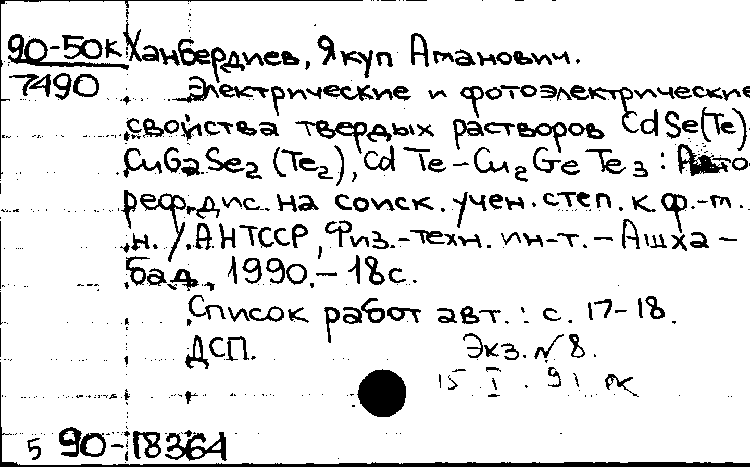 90-50к Ханбердиев, Якуп Аманович.
7490
Электрические и фотоэлектрические
свойства твердых растворов CdSe(Te)
CuGaSe₂ (Te₂), CdTe-Cu₂GeTe₃: Авто-
реф. дис. на соиск. учен. степ. к.ф.-м.
н. / АН ТССР, Физ.-техн. ин-т. - Ашха-
бад, 1990. - 18с.
Список работ авт.: с. 17-18.
ДСП. Экз. № 8.
15 I. 91
5 90-18364